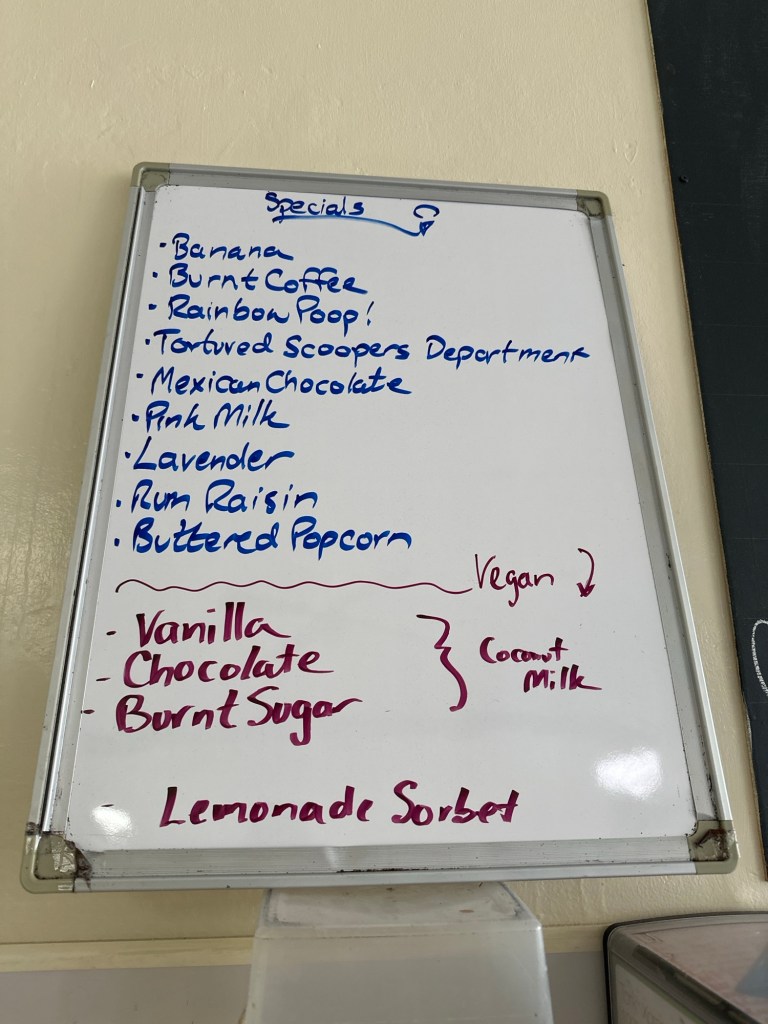 Specials
· Banana
· Burnt Coffee
· Rainbow Poop!
· Tortured Scoopers Department
· Mexican Chocolate
· Pink Milk
· Lavender
· Rum Raisin
· Buttered Popcorn
Vegan
- Vanilla
- Chocolate
- Burnt Sugar
Coconut
Milk
- Lemonade Sorbet